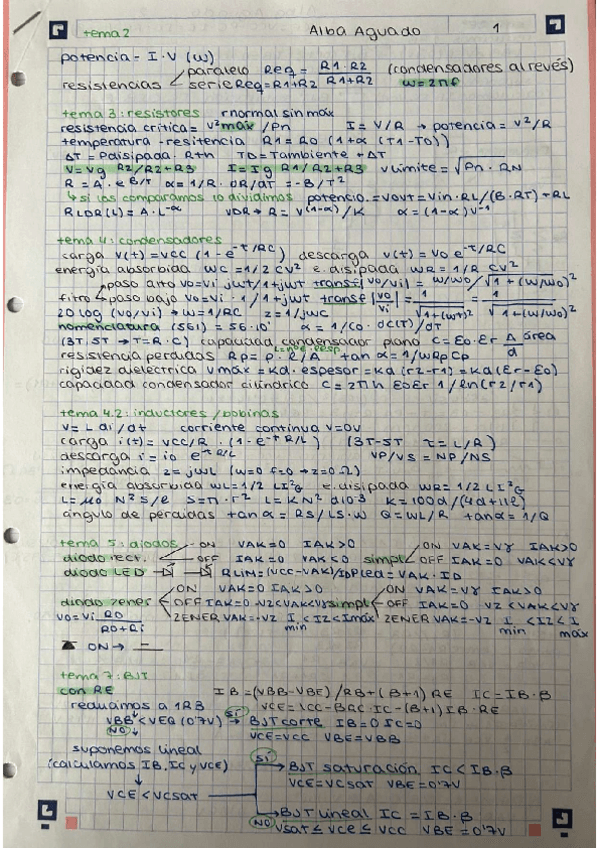 tema 2 Alba Aguado 1
potencia = I·V (W)
resistencias paralelo Req = R1·R2 / R1+R2 (condensadores al revés)
serie Req = R1+R2 ω = 2πf
tema 3: resistores rnormal sin máx
resistencia crítica = V²máx / Pn I = V/R → potencia = V²/R
temperatura - resitencia R1 = R0 (1+α(T1-T0))
ΔT = Pdisipada · Rth TD = Tambiente + ΔT
V = Vg R2/R2+R3 I = Ig R1/R2+R3 Vlimite = √Pn · RN
R = A · e B/T α = 1/R · DR/dT = -B/T²
↳ si las comparamos lo dividimos potencio. = Vout = Vin · RL/(B·RT) + RL
R LDR(L) = A·L^-α VDR → R = V^(1-α)/K α = (1-α)V^-1
tema 4: condensadores
carga v(t) = VCC (1-e^-t/RC) descarga v(t) = V0 e^-t/RC
energía absorbida WC = 1/2 CV² e. disipada WR = 1/R CV²
paso alto Vo = Vi jωt/1+jωt transf |Vo/Vi| = ω/ω0 / √1+(ω/ω0)²
filtro paso bajo Vo = Vi · 1/1+jωt transf |Vo/Vi| = 1/√1+(ωt)² = 1/√1+(ω/ω0)²
20 log (Vo/Vi) → ω = 1/RC Z = 1/jωC
nomenclatura (561) = 56·10¹ α = 1/C0 · dC(T)/dT
(3T·5T → T = R·C) capacidad condensador plano C = ε0·εr A/d área
resistencia perdidas Rp = ρ · l/A tan α = 1/ωRpCp
rigidez dielectrica Vmáx = Kd · espesor = Kd (r2-r1) = Kd (εr-ε0)
capacidad condensador cilíndrico C = 2πh ε0εr 1/ln(r2/r1)
tema 4.2: inductores / bobinas
V = L di/dt corriente continua V = 0V
carga i(t) = VCC/R · (1-e^-t R/L) (3T-5T τ = L/R)
descarga i = i0 e^-t R/L VP/VS = NP/NS
impedancia Z = jωL (ω=0 f=0 → Z=0 Ω)
energía absorbida WL = 1/2 LI² e. disipada WR = 1/2 LI²
L = μ0 N² S/l S = π·r² L = KN² d10^-3 K = 100d/(4d+11l)
angulo de perdidas tan α = RS/LS·ω Q = ωL/R tan α = 1/Q
tema 5: diodos ON VAK=0 IAK>0 ON VAK=Vγ IAK>0
diodo rect. OFF IAK=0 VAK<0 simpl OFF IAK=0 VAK<Vγ
diodo LED RLIM = (VCC-VAK)/ID PLed = VAK·ID
ON VAK=0 IAK>0 ON VAK=Vγ IAK>0
diodo zener OFF IAK=0 -VZ<VAK<Vγ simpl OFF IAK=0 VZ<VAK<Vγ
Vo = Vi R0/R0+Ri ZENER VAK=-VZ I min <IZ<Imáx ZENER VAK=-VZ I min <IZ<I máx
ON →
tema 7: BJT
con RE IB = (VBB-VBE)/RB+(B+1)RE IC = IB·B
reducimos a 1RB VCE = VCC-BRC·IC-(B+1)IB·RE
VBB<VEQ (0'7V) SÍ → BJT corte IB=0 IC=0
NO VCE=VCC VBE=VBB
suponemos lineal
(calculamos IB, IC y VCE) SÍ BJT saturación IC<IB·B
VCE=VCsat VBE=0'7V
VCE<VCsat
BJT lineal IC=IB·B
NO Vsat≤VCE≤VCC VBE=0'7V